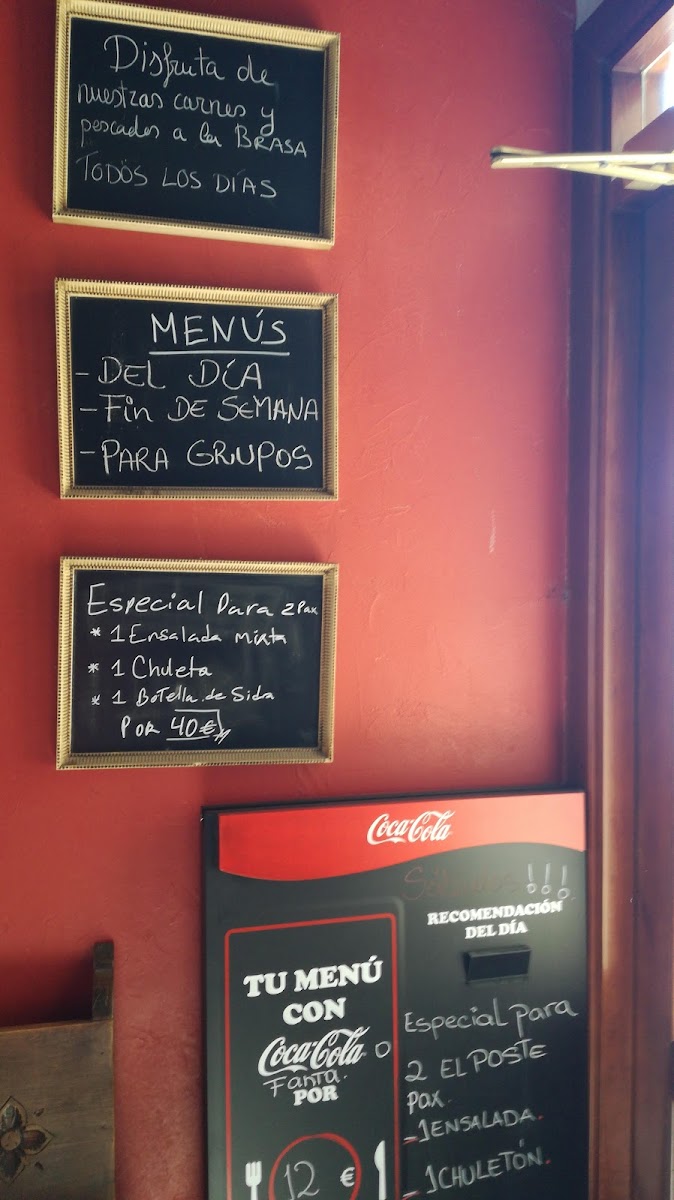 Disfruta de
nuestras carnes y
pescados a la BRASA
TODOS LOS DÍAS
MENÚS
- DEL DÍA
- Fin DE SEMANA
- PARA GRUPOS
Especial Para 2 Pax
* 1 Ensalada mixta
* 1 Chuleta
* 1 Botella de Sidra
Por 40€
Coca-Cola
!!!
RECOMENDACIÓN
DEL DÍA
TU MENÚ
CON
Coca-Cola o
Fanta.
POR
12 €
Especial para
2 EL POSTE
pax.
- 1 ENSALADA.
- 1 CHULETÓN.